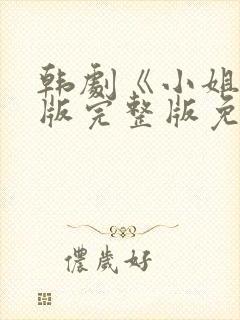 韩劇《小姐
版完整版免
儂歲好